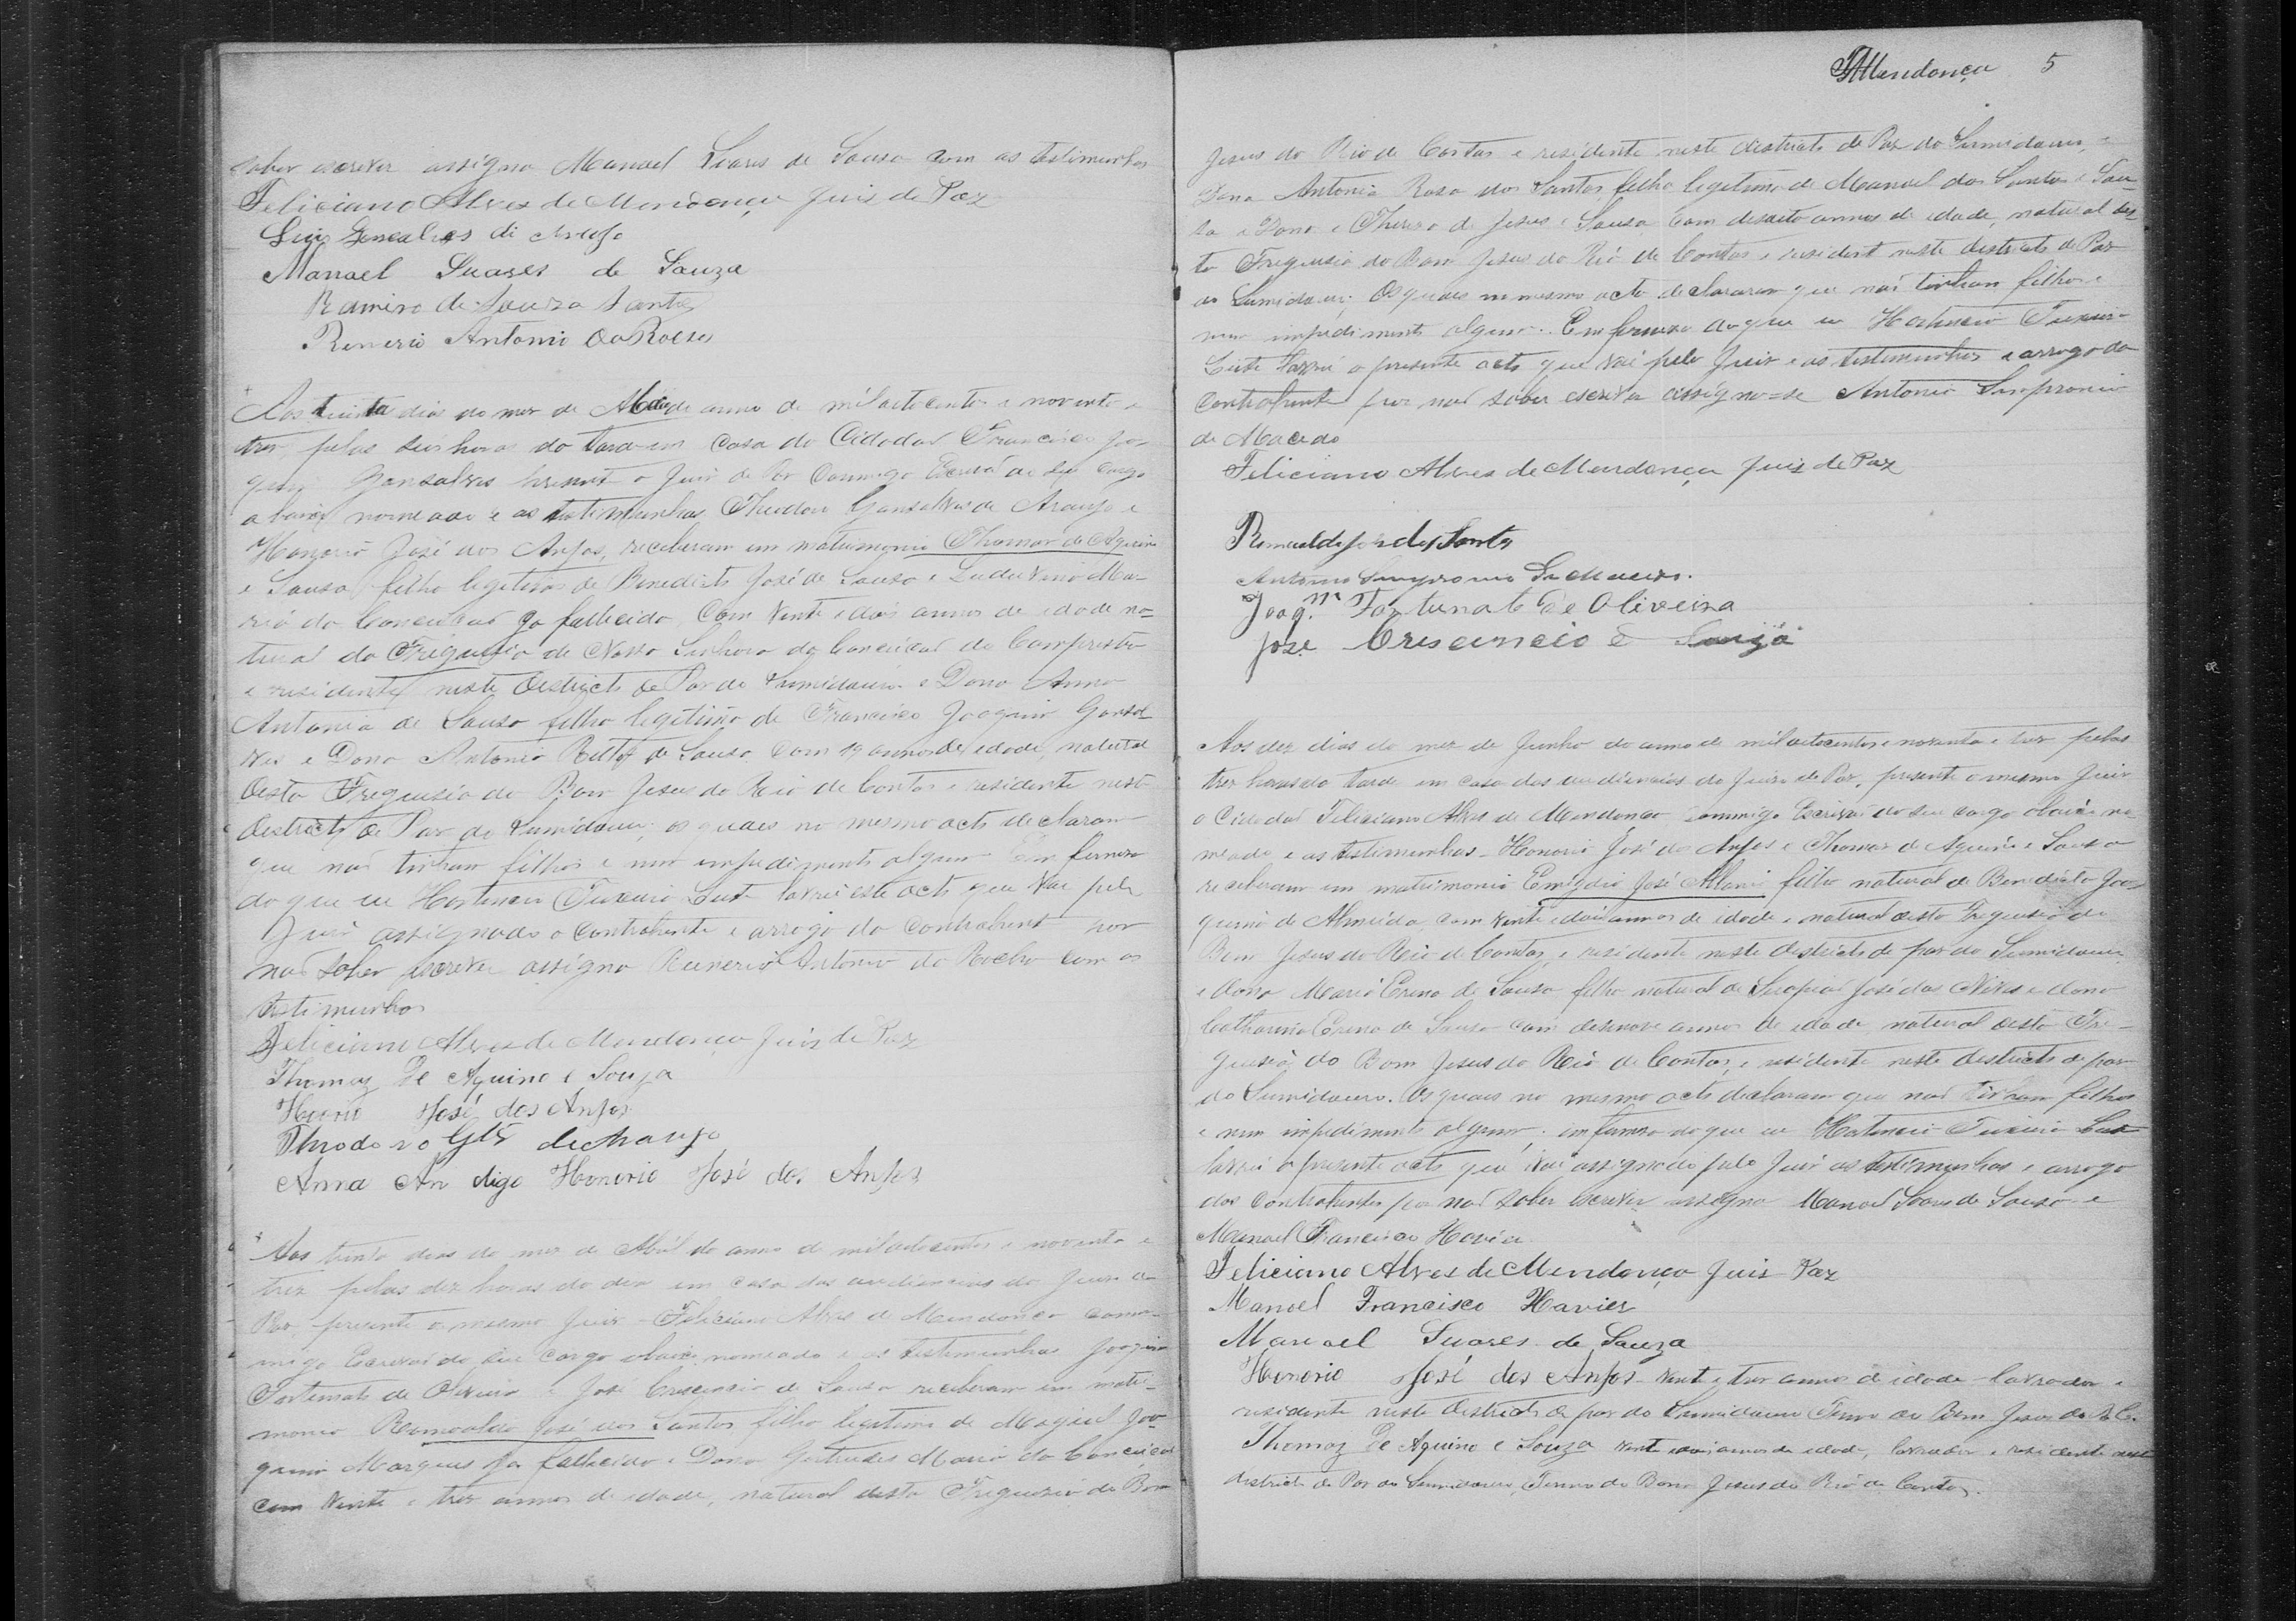 saber escrever assigna Manoel Soares de Sousa com as testimunhas
Feliciano Alves de Mendonça Juis de Paz
Luis Goncalves di Araujo
Manoel Suares de Souza
Ramiro de Souza Santos
Renerio Antonio da Rocha
Aos trinta dias do mez de Maio de anno de mil oitocentos e noventa e
tres, pelas seis horas da tarde em casa do Cidadaõ Francisco Joa-
quim Gonsalves presente o Juiz de Paz commigo Escrivaõ do seu cargo
abaixo nomeado e as testimunhas Theodoro Gonsalves de Araujo e
Honorio José dos Anjos, receberam em matrimonio Thomaz de Aquino
e Sousa filho legitimo de Benedicto José de Souso e Ludurvina Ma-
ria da Conceicaõ ja fallecida, com vinte e dois annos de idade na-
tural da Freguesia de Nossa Senhora da Conceicaõ de Campestre
e residente neste Destricto de Paz do Sumidouro e Dona Anna
Antonia de Sousa filha legitima de Francisco Joaquim Gonsal-
ves e Dona Antonia Ritta de Sousa, com 19 annos de idade, natural
desta Freguesia do Bom Jesus do Rio de Contas e residente neste
destricto de Paz do Sumidouro; os quaes no mesmo acto declaram
que naõ tinham filhos e nem impedimento algum. Em firmesa
do que eu Hortencio Teixeira Leite lavrei este acto que vae pelo
Juiz assignado o contrahente e arrogo da contrahente por
naõ saber escrever assigna Renerio Antonio da Rocha com as
testimunhas
Feliciano Alves de Mendonça Juis de Paz
Thomaz De Aquino e Souza
Honorio José dos Anjos
Theodoro Glz de Araujo
Anna An digo Honorio José dos Anjos
Aos trinta dias do mez de Abril do anno de mil oitocentos e noventa e
tres pelas dez horas do dia em casa das audiencias do Juiz de
Paz, presente o mesmo Juiz Feliciano Alves de Mendonça comm-
migo Escrivaõ do seu cargo abaixo nomeado e as testimunhas Joaquim
Fortunato de Oliveira e José Crescencio de Sousa receberam em matri-
monio Romoaldo José dos Santos filho legitimo de Magiel Joa-
quim Marques ja fallecido e Dona Gertrudes Maria da Conceicaõ
com vinte e tres annos de idade, natural desta Freguezia do Bom
FAMendonça 5
Jesus do Rio de Contas e residente neste districto de Paz do Sumidouro, e
Dona Antonia Rosa dos Santos, filha legitima de Manoel dos Santos e Sou-
sa e Dona Thereza de Jesus e Sousa com desoito annos de idade, natural des-
ta Freguesia do Bom Jesus do Rio de Contas e resident neste destricto de Paz
do Sumidouro; Os quaes no mesmo acto declararam que naõ tinham filhos e
nem impedimento algum. Em firmesa do que eu Hortencio Teixeira
Leite lavrei o presente acto que vai pelo Juiz e as testimunhas e arrogo da
contrahente por naõ saber escrever assigna-se Antonio Simpronio
de Macedo
Feliciano Alves de Mendonça Juis de Paz
Romualdo José dos Santos
Antonio Simpronio De Macedo.
Joaq.m Fortunato De Oliveira
Joze Crescencio e Souza
Aos dez dias do mez de Junho do anno de mil oitocentos e noventa e tres pelas
tres horas da tarde em casa das audiencias do Juizo de Paz, presente o mesmo Juiz
o Cidadaõ Feliciano Alves de Mendonça commigo Escrivaõ do seu cargo abaixo no-
meado e as testimunhas Honorio José dos Anjos e Thomaz de Aquino e Sousa
receberam em matrimonio Emigdio José filho natural de Benedicto Joa-
quim de Almeida, com vinte e dois annos de idade e natural desta Freguesia do
Bom Jesus do Rio de Contas, e residente neste destricto de paz do Sumidouro
e Dona Maria Erena de Sousa filha natural de Serapiaõ José das Neves e dona
Catharina Erena de Sousa com desenove annos de idade natural desta Fre-
guesia do Bom Jesus do Rio de Contas, e residente neste destricto de paz
do Sumidouro. Os quaes no mesmo acto declararam que naõ tinham filhos
e nem impedimento algum; em firmesa do que eu Hortencio Teixeira Leite
lavrei o presente acto que vai assignado pelo Juiz as testimunhas e arrogo
dos contrahentes por naõ saber escrever assigna Manoel Soares de Sousa e
Manoel Francisco Xavier
Feliciano Alves de Mendonça Juis Paz
Manoel Francisco Xavier
Manoel Suares de Souza
Honorio José dos Anjos vente e tres annos de idade lavrador e
residente neste destricto de paz do Sumidouro Termo do Bom Jesus do R. Co.
Thomaz De Aquino e Souza vente e dois annos de idade, lavrador e residente neste
destricto de Paz do Sumidouro, Termo do Bom Jesus do Rio de Contas.